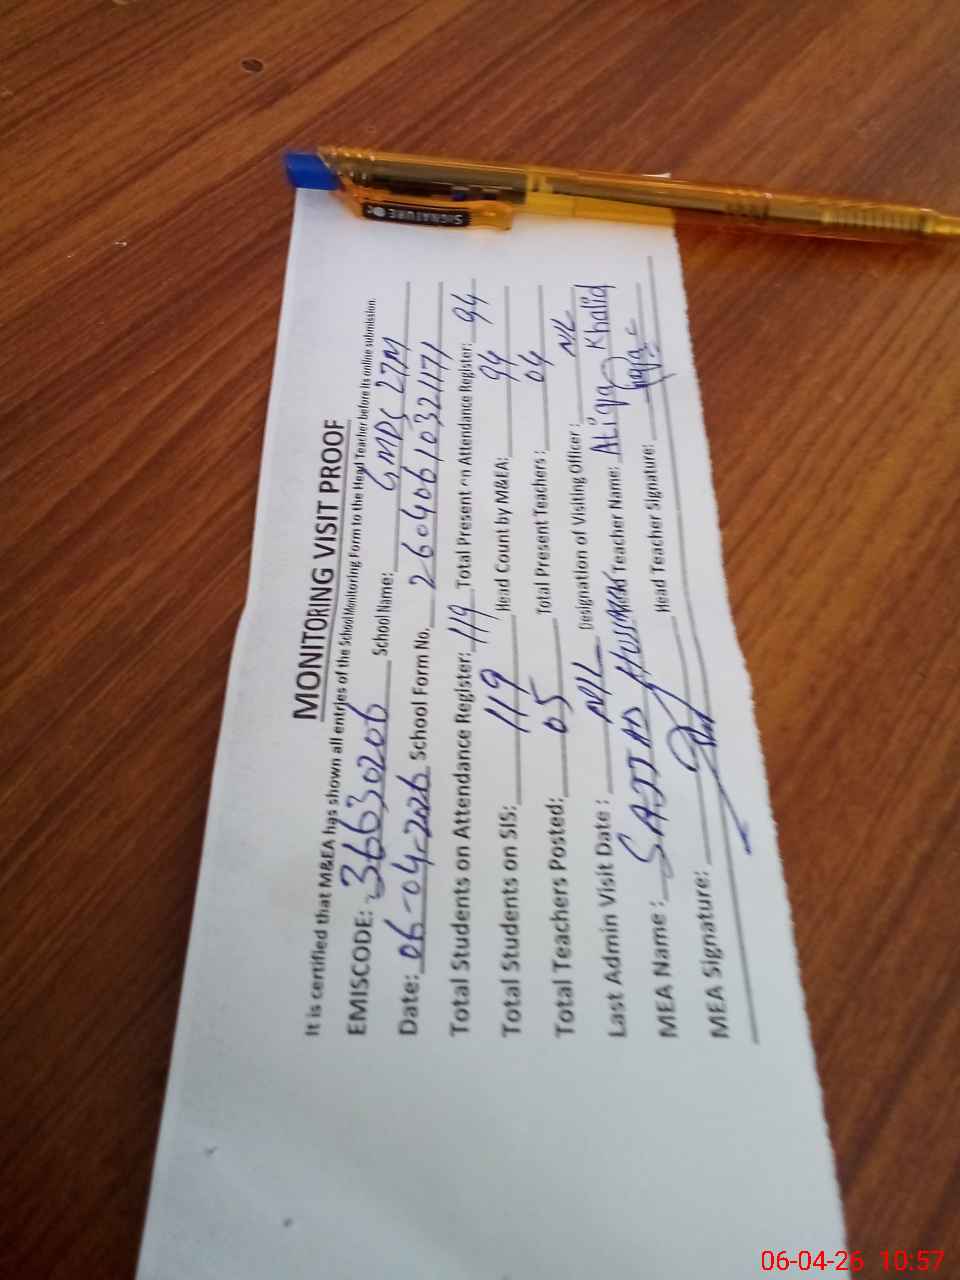 SIGNATURE
MONITORING VISIT PROOF
It is certified that M&EA has shown all entries of the School Monitoring Form to the Head Teacher before its online submission.
EMISCODE: 36630206 School Name: GMPS 27M
Date: 06-04-2026 School Form No. 260406103211 71
Total Students on Attendance Register: 119 Total Present on Attendance Register: 94
Total Students on SIS: 119 Head Count by M&EA: 94
Total Teachers Posted: 05 Total Present Teachers: 04
Last Admin Visit Date: NIL Designation of Visiting Officer: NIL
MEA Name: SAJJAD HUSSAIN Head Teacher Name: Atiqa Khalid
MEA Signature: Head Teacher Signature:
06-04-26 10:57